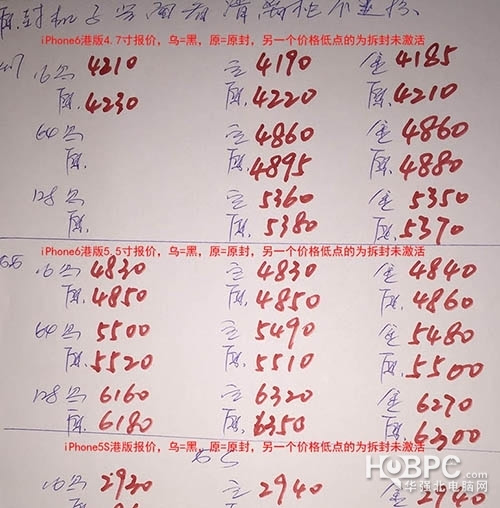 iPhone6港版4.7寸报价，乌=黑，原=原封，另一个价格低点的为拆封未激活
16乌 4210 4190 金 4185
原 4230 原 4220 原 4210
64乌 4860 金 4860
原. 原 4895 原 4880
128乌 5360 金 5350
原 原 5380 原. 5370
iPhone6港版5.5寸报价，乌=黑，原=原封，另一个价格低点的为拆封未激活
16乌 4830 4830 金 4840
原. 4850 原. 4850 原. 4860
64乌 5500 5490 金 5480
原. 5520 原. 5510 原. 5500
128乌 6160 6320 金 6270
原. 6180 原. 6350 原. 6300
iPhone5S港版报价，乌=黑，原=原封，另一个价格低点的为拆封未激活
5S
16乌 2930 2940 金 2940
HOBPC.com
华强北电脑网